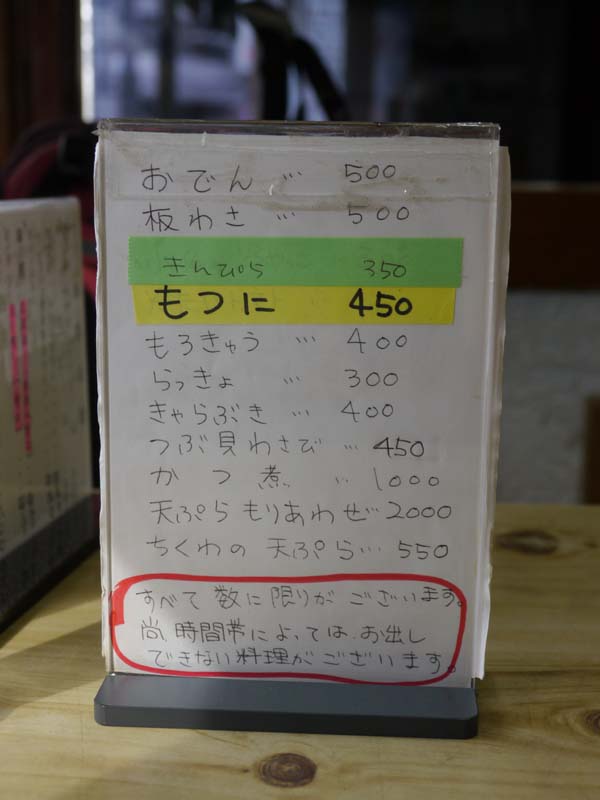 おでん … 500
板わさ … 500
きんぴら 350
もつに 450
もろきゅう … 400
らっきょ … 300
きゃらぶき … 400
つぶ貝わさび … 450
かつ煮 … 1000
天ぷらもりあわせ… 2000
ちくわの天ぷら… 550
すべて数に限りがございます。
尚、時間帯によっては、お出し
できない料理がございます。